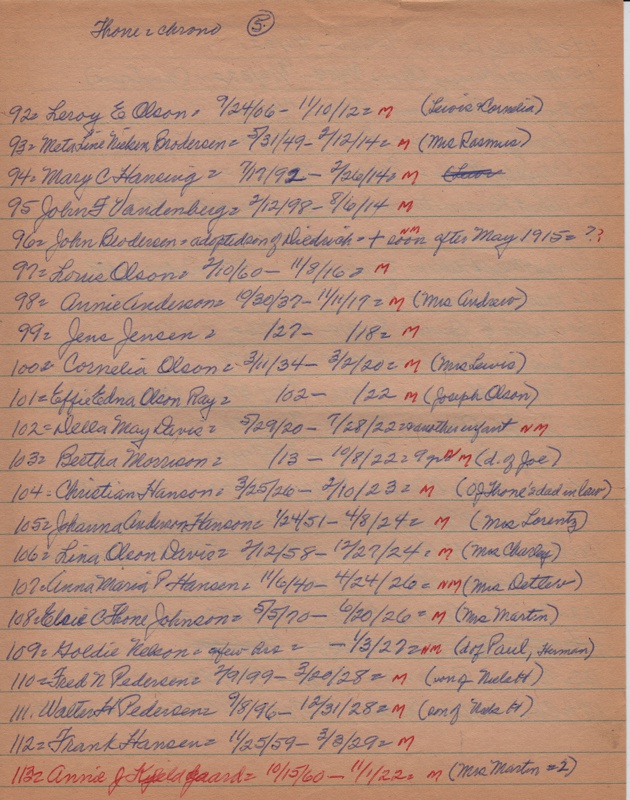 Thone = chrono (5.)
92= Leroy E Olson= 9/24/06 - 11/10/12= M (Lewis Cornelia)
93= Meta Line Nicken Brodersen= 5/31/49 - 2/12/14= M (Mrs Rasmus)
94= Mary C Hansing= 7/17/92 - 2/26/14= M
95 John F Vandenberg= 2/12/98 - 8/6/14 M
96= John Brodersen= adopted son of Diedrich = + soon after May 1915= ?? NM
97= Louis Olson= 2/10/60 - 11/8/16= M
98= Annie Anderson= 10/30/37 - 11/11/17= M (Mrs Andrew)
99= Jens Jensen= /27 - /18= M
100= Cornelia Olson= 3/11/34 - 3/2/20= M (Mrs Lewis)
101= Effie Edna Olson Ray= /02 - /22 M (Joseph Olson)
102= Della May Davis= 5/29/20 - 7/28/22= another infant NM
103= Bertha Morrison= /13 - 10/8/22= 9 yrs NM (d. of Joe)
104= Christian Hanson= 3/25/26 - 2/10/23= M (Of Thone's dad in law)
105= Johanna Anderson Hanson= 1/24/51 - 4/8/24= M (Mrs Lorentz)
106= Lina Olson Davis= 2/12/58 - 12/27/24= M (Mrs Charley)
107= Anna Maria P. Hansen= 11/6/40 - 4/24/26= NM (Mrs Detlew)
108= Elsie C Thone Johnson= 5/5/70 - 6/20/26= M (Mrs Martin)
109= Goldie Nelson= a few hrs= - 1/3/27= NM (d of Paul, Herman)
110= Fred N Pedersen= 2/9/99 - 3/20/28= M (son of Niels H)
111. Walter H Pedersen= 9/8/96 - 12/31/28= M (son of Niels H)
112= Frank Hansen= 11/25/59 - 3/3/29= M
113= Annie J Kjeldgaard= 10/15/60 - 11/1/22= M (Mrs Martin = 2)